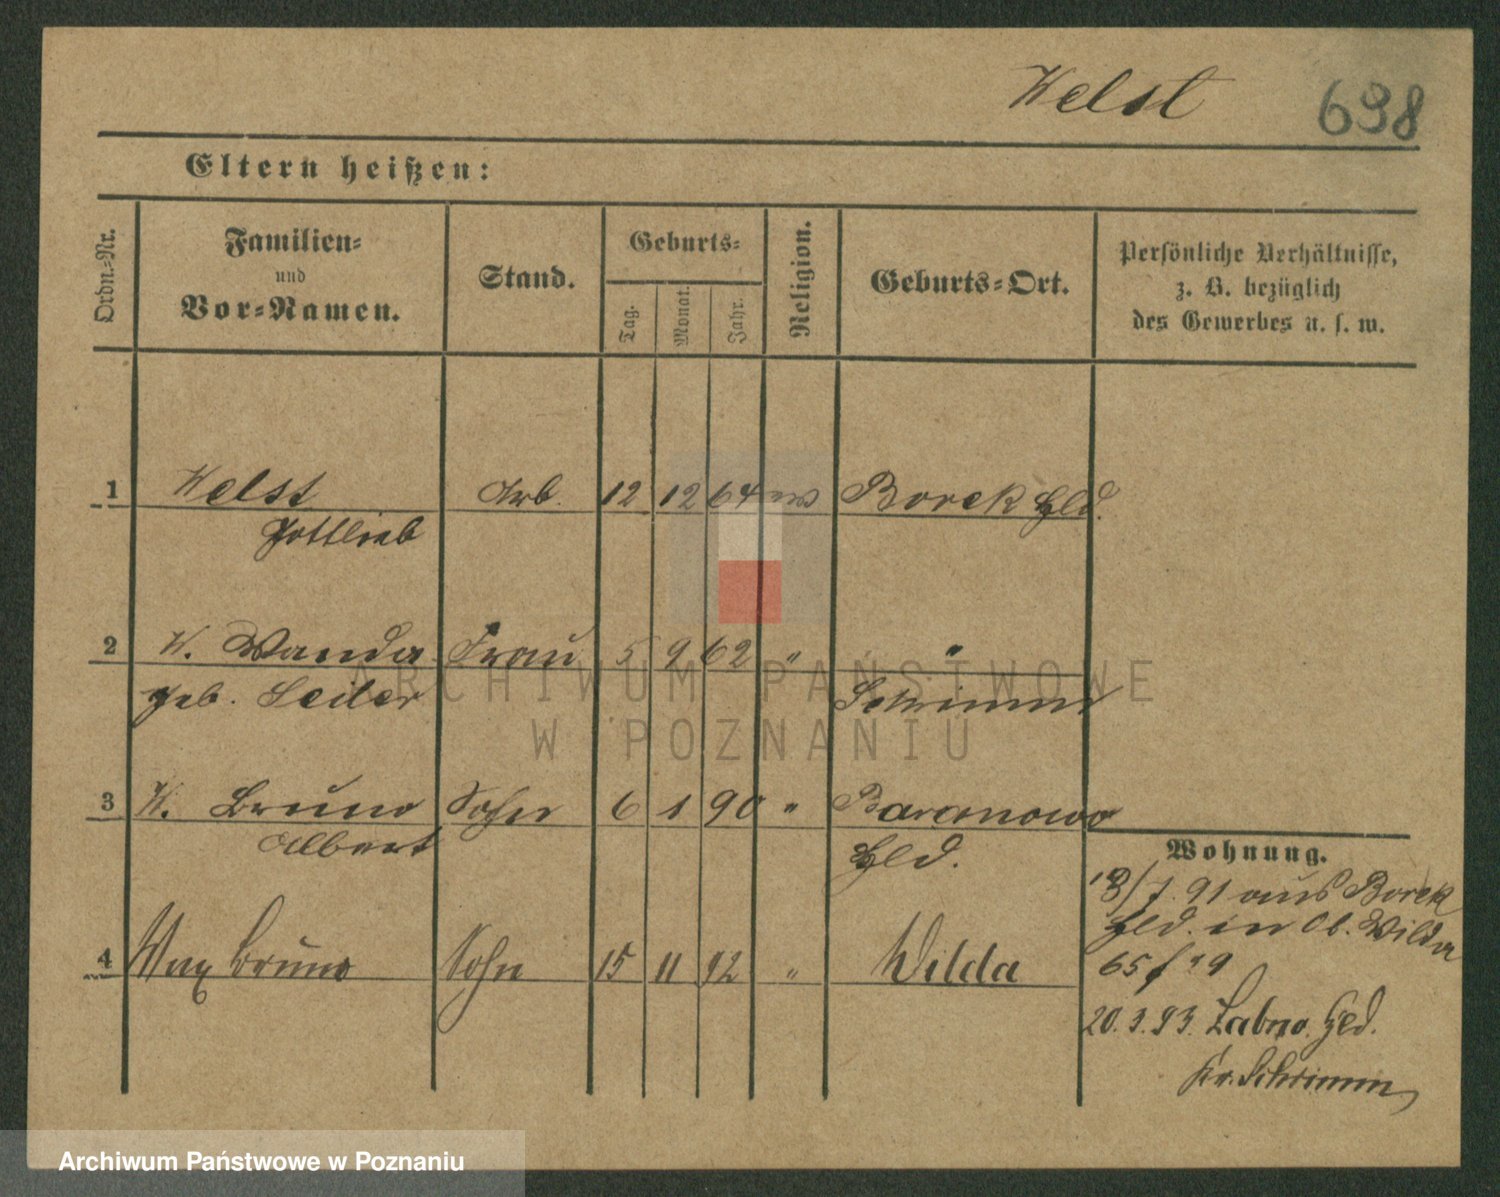 Welst 698
Eltern heißen:
Ordn.-Nr.
Familien-
und
Vor-Namen.
Stand.
Geburts-
Tag.
Monat.
Jahr.
Religion.
Geburts-Ort.
Persönliche Verhältnisse,
z. B. bezüglich
des Gewerbes u. s. w.
1 Welst Arb. 12 12 64 ev Borek Hld.
Gottlieb
2 W. Wanda Frau 5 9 62 " "
geb. Seiler Schrimm
3 W. Bruno Sohn 6 1 90 " Baranowo
Albert Hld.
4 Max Bruno Sohn 15 11 92 " Wilda
Wohnung.
18/7. 91 aus Borek
Hld. in Ob. Wilda
65
20.3.93. Zabno Hld.
Kr. Schrimm
ARCHIWUM PAŃSTWOWE
W POZNANIU
Archiwum Państwowe w Poznaniu